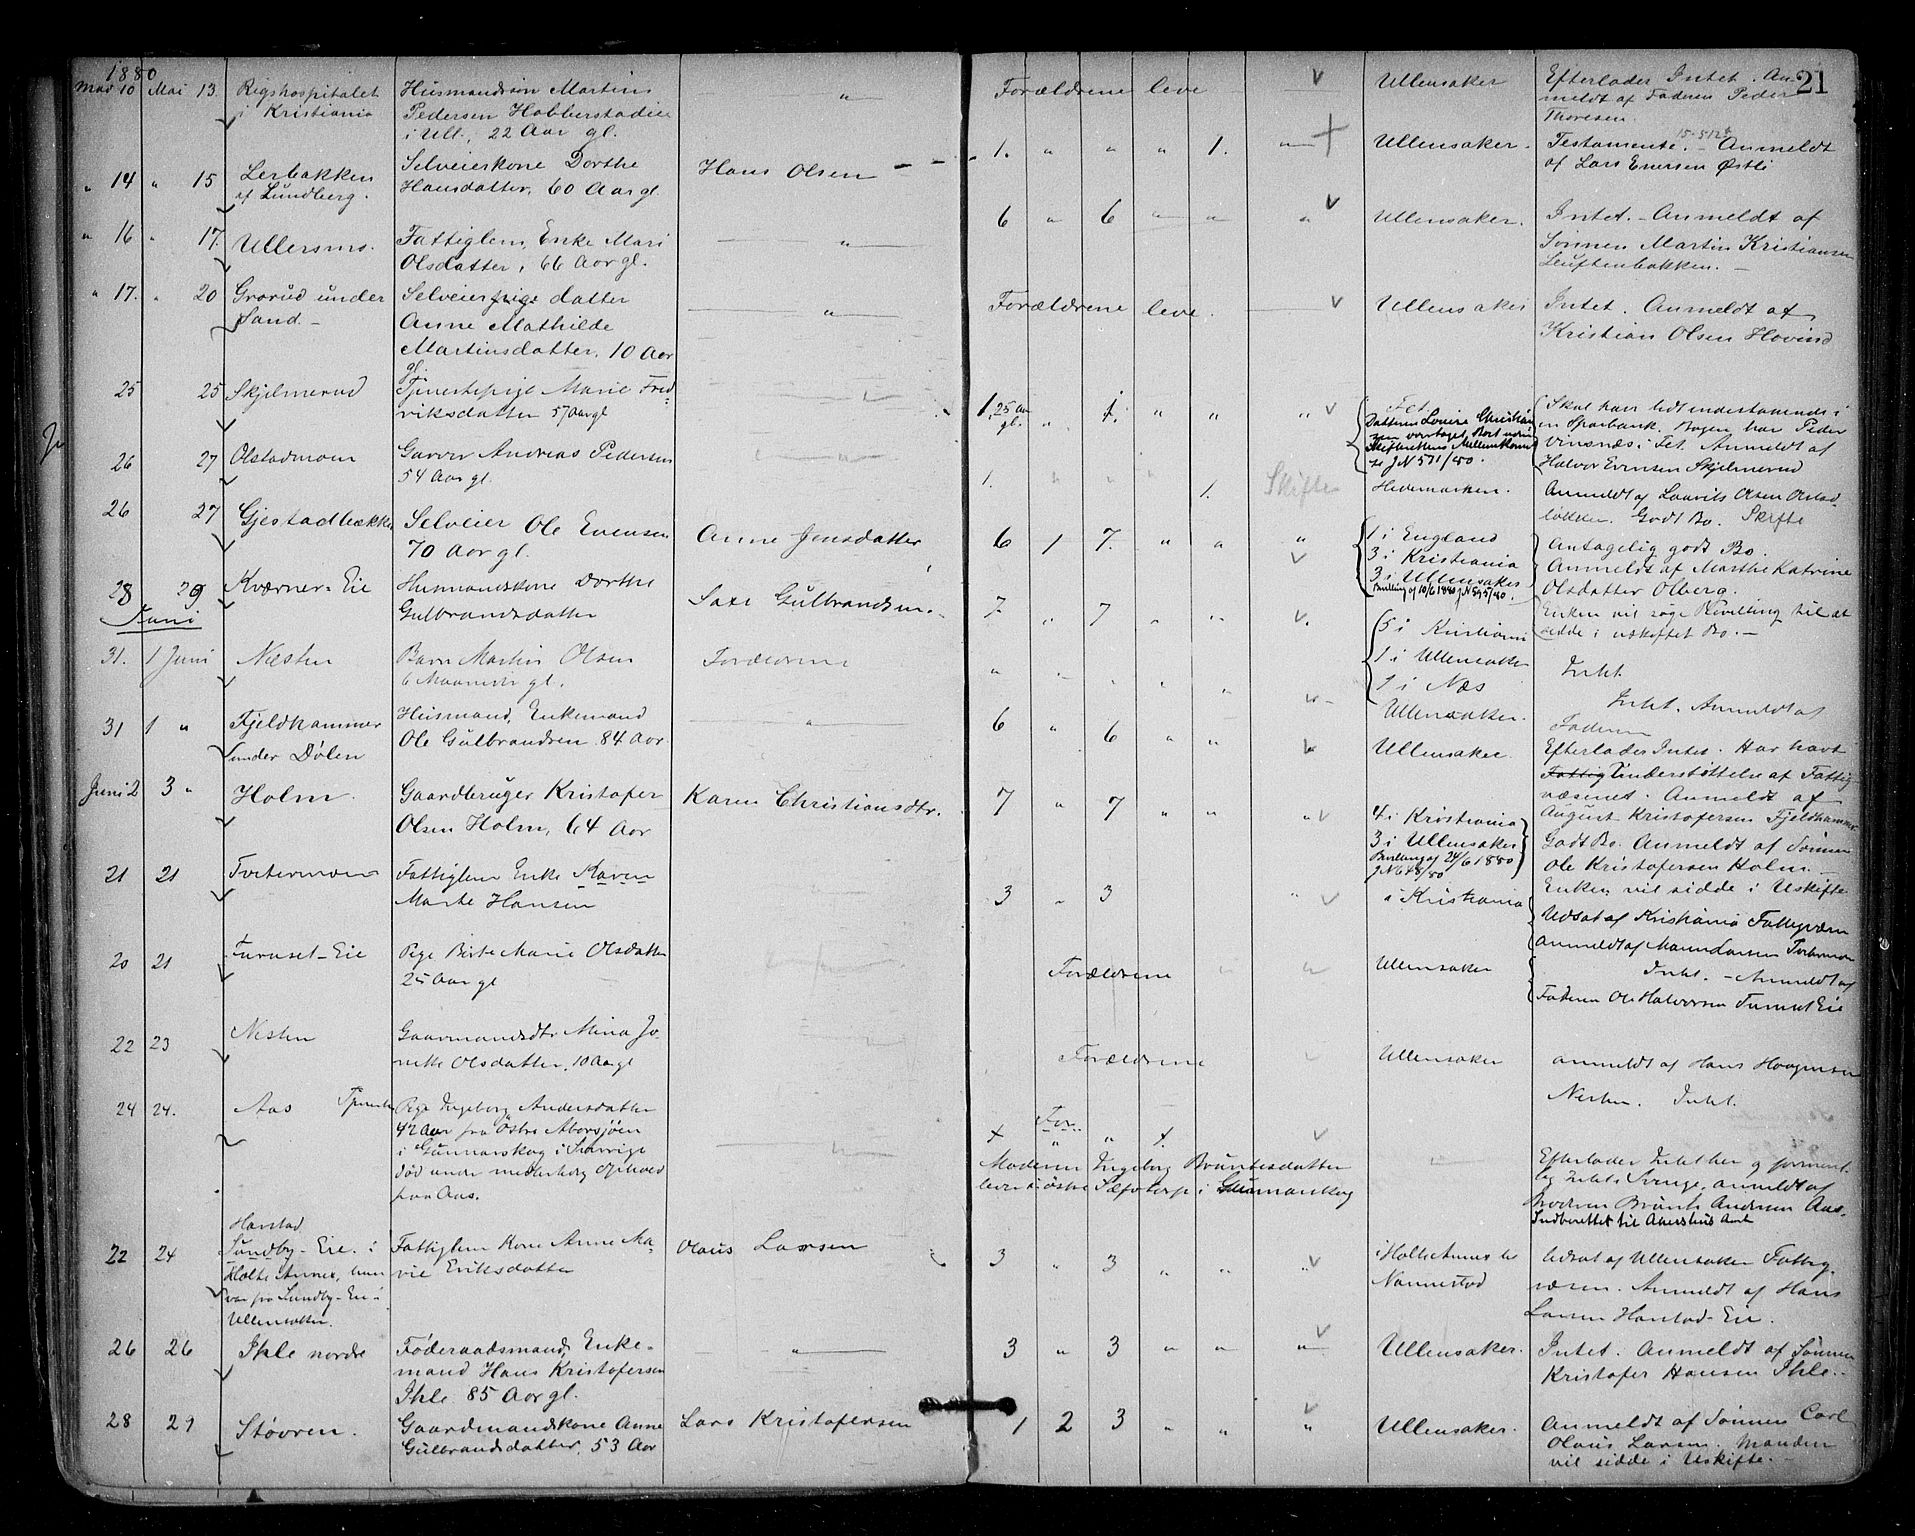 1880
21
Mai 10 Mai 13. Rigshospitalet Husmandssøn Martins " Forældrene leve v Ullensaker Efterlader Intet. An-
i Kristiania Pedersen meldt af Faderen Peder
i Ull., 22 Aar gl. Thoresen.
" 14 " 15 Lerbakken Selveierskone Dorthe Hans Olsen 1. " " " 1. " Ullensaker. Testamente. - Anmeldt
af Lundberg. Hansdatter, 60 Aar gl. af Lars Enersen Østli
" 16 " 17. Ullersmo. Fattiglem, Enke Mari " 6 " 6 " " " v Ullensaker. Intet. - Anmeldt af
Olsdatter, 66 Aar gl. Sønnen Martin Kristiansen
Leuftenbakken. -
" 17. " 20 Grorud under Selveier datter " Forældrene leve. v Ullensaker Intet. Anmeldt af
Sand. - Anne Mathilde Kristian Olsen Hovind
Martinsdatter, 10 Aar
gl.
25 25 Skjelmerud Tjenestepige Marie Fred- 1, 25 Aar gl. " 1. " " " v Fet Skal have lidt indestaaende i
riksdatter 57 Aar gl Datteren Lovise Christian en Sparbank. Bogen har Peder
vinsnæs i Fet. Anmeldt af
J N 571/80. Halvor Evensen Skjelmerud
26 27 Olstadmoen Garver Andreas Pedersen 1. " " " 1. Skifte Hedemarken. Anmeldt af Laurits Olsen Olstad-
54 Aar gl. løkken. Godt Bo. Skifte
26 27 Gjestadbækken Selveier Ole Evensen Anne Jensdatter 6 1 7. " " " v 1 i England Antagelig godt Bo.
70 Aar gl. 3 i Kristiania Anmeldt af Marthe Katrine
3 i Ullensaker Olsdatter Olberg.
Bevilling af 10/6 1880 J N 595/80. Enken vil søge Bevilling til at
sidde i uskiftet Bo. -
28 29 Kværner-Eie Husmandskone Dorthe Gulbrandsen. 7 " 7 " " v. 5 i Kristiania
Gulbrandsdatter 1 i Ullensaker Intet.
1 i Næs
Juni
31. 1 Juni Næsten Barn Martin Olsen Forældrene " " " " " Ullensaker. Intet. Anmeldt af
6 Maaneder gl. Faderen
31 1 " Fjeldhammer Husmand, Enkemand " 6 " 6 " " v Ullensaker Efterlader Intet. Har havt
under Dølen Ole Gulbrandsen 84 Aar Fattig Understøttelse af Fattig
væsenet. Anmeldt af
August Kristofersen Fjeldhammer
Juni 2 3 " Holm. Gaardbruger Kristofer Karen Christiansdtr. 7 " 7 " " " v 4 i Kristiania Godt Bo. Anmeldt af Sønnen
Olsen Holm, 64 Aar 3 i Ullensaker. Ole Kristofersen Holm. -
Bevilling af 24/6 1880 Enken vil sidde i Uskifte
J N 648/80
21 21 Fattiglem Enke Karen 3 " 3 " v i Kristiania Udsat af Kristiania Fattigvæsen
Marte Hansen anmeldt af
20 21 Furuset-Eie Pige Birte Marie Olsdatter Forældrene Ullensaker Intet. - Anmeldt af
25 Aar gl Faderen Ole Halvorsen Furuset Eie
22 23 Nesten Gaarmandsdtr Mina Jo- Forældrene Ullensaker anmeldt af Hans
nette Olsdatter, 10 Aar gl Nesten. Intet.
24 24. Aas Tjeneste Pige Ingeborg Andersdatter For.
42 Aar fra Östre + " " +. v
i Gunnarskog i Sverrige Moderen Ingeborg Bryntesdatter Efterlader Intet her og forment-
død under midlertidig Ophold lever i östre i Gunnarskog lig Intet i Sverige, anmeldt af
paa Aas. Broderen Brynte Andersen Aas.
Indberettet til Akershus Amt
22 24 Harstad
Sundby-Eie. i Fattiglem Kone Anne Ma- Olaus Larsen 3 " 3 " " " v i Holte Annex til Udsat af Ullensaker Fattig-
Holte Annex, men rie Eriksdatter Nannestad væsen. Anmeldt af Hans
var fra Sundby-Eie i Larsen Harstad-Eie.
Ullensaker.
26 26 Ihle nordre Føderaadsmand, Enke- " 3 " 3 " " " v Ullensaker. Intet. Anmeldt af Sønnen
mand Hans Kristofersen Kristofer Hansen Ihle.
Ihle 85 Aar gl.
28 29 Støvren. Gaardmandskone Anne Lars Kristofersen 1 2 3 " " " v Ullensaker. Anmeldt af Sønnen Carl
Gulbrandsdatter, 53 Aar Olaus Larsen. Manden
vil sidde i Uskifte. -